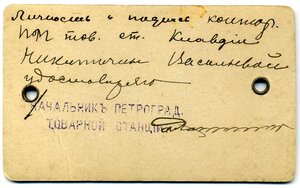 Личность и подпись контор.
ПМ тов. ст. Клавдiи
Никитичны Васильевой
удостоверяю
НАЧАЛЬНИКЪ ПЕТРОГРАД.
ТОВАРНОЙ СТАНЦIИ